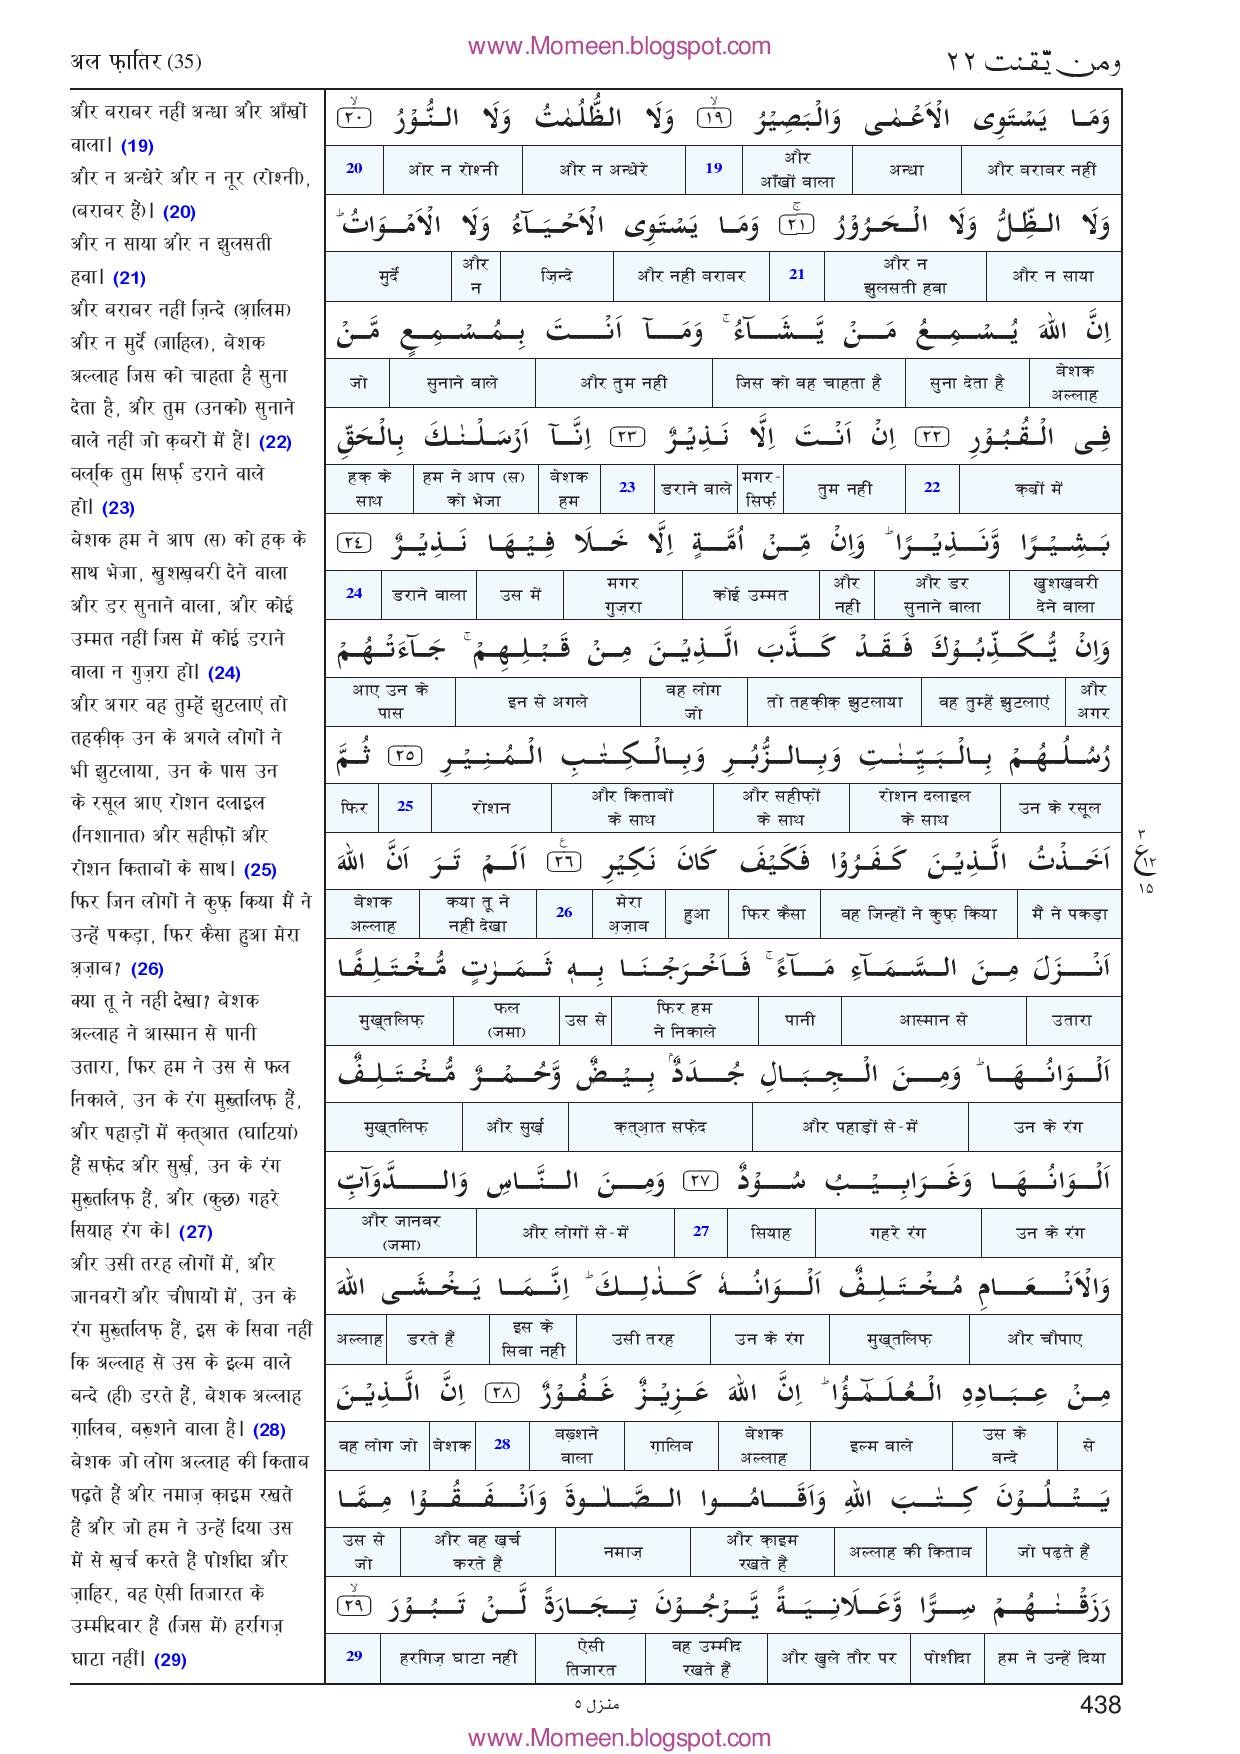 www.Momeen.blogspot.com
अल फ़ातिर (35)
ومن یّقنت ٢٢
और बराबर नहीं अन्धा और आँखों
वाला। (19)
और न अन्धेरे और न नूर (रोश्नी),
(बराबर हैं)। (20)
और न साया और न झुलसती
हवा। (21)
और बराबर नहीं ज़िन्दे (आ़लिम)
और न मुर्दे (जाहिल), बेशक
अल्लाह जिस को चाहता है सुना
देता है, और तुम (उनको) सुनाने
वाले नहीं जो क़बरों में हैं। (22)
बल्कि तुम सिर्फ़ डराने वाले
हो। (23)
बेशक हम ने आप (स) को हक़ के
साथ भेजा, खुशख़बरी देने वाला
और डर सुनाने वाला, और कोई
उम्मत नहीं जिस में कोई डराने
वाला न गुज़रा हो। (24)
और अगर वह तुम्हें झुटलाएं तो
तहक़ीक़ उन के अगले लोगों ने
भी झुटलाया, उन के पास उन
के रसूल आए रोशन दलाइल
(निशानात) और सहीफ़ों और
रोशन किताबों के साथ। (25)
फिर जिन लोगों ने कुफ़ किया मैं ने
उन्हें पकड़ा, फिर कैसा हुआ मेरा
अ़ज़ाब? (26)
क्या तू ने नहीं देखा? बेशक
अल्लाह ने आस्मान से पानी
उतारा, फिर हम ने उस से फल
निकाले, उन के रंग मुख़्तलिफ़ हैं,
और पहाड़ों में क़त्आ़त (घाटियां)
हैं सफ़ेद और सुर्ख़, उन के रंग
मुख़्तलिफ़ हैं, और (कुछ) गहरे
सियाह रंग के। (27)
और उसी तरह लोगों में, और
जानवरों और चौपायों में, उन के
रंग मुख़्तलिफ़ हैं, इस के सिवा नहीं
कि अल्लाह से उस के इल्म वाले
बन्दे (ही) डरते हैं, बेशक अल्लाह
ग़ालिब, बख़्शने वाला है। (28)
बेशक जो लोग अल्लाह की किताब
पढ़ते हैं और नमाज़ क़ाइम रखते
हैं और जो हम ने उन्हें दिया उस
में से ख़र्च करते हैं पोशीदा और
ज़ाहिर, वह ऐसी तिजारत के
उम्मीदवार हैं (जिस में) हरगिज़
घाटा नहीं। (29)
وَمَا يَسْتَوِى الْاَعْمٰى وَالْبَصِيْرُ ۙ﴿١٩﴾ وَلَا الظُّلُمٰتُ وَلَا النُّوْرُ ۙ﴿٢٠﴾
और बराबर नहीं | अन्धा | और आँखों वाला | 19 | और न अन्धेरे | ओर न रोश्नी | 20
وَلَا الظِّلُّ وَلَا الْحَرُوْرُ ۚ﴿٢١﴾ وَمَا يَسْتَوِى الْاَحْيَآءُ وَلَا الْاَمْوَاتُ ؕ
और न साया | और न झुलसती हवा | 21 | और नहीं बराबर | ज़िन्दे | और न | मुर्दे
اِنَّ اللّٰهَ يُسْمِعُ مَنْ يَّشَآءُ ۚ وَمَآ اَنْتَ بِمُسْمِعٍ مَّنْ
बेशक अल्लाह | सुना देता है | जिस को वह चाहता है | और तुम नहीं | सुनाने वाले | जो
فِى الْقُبُوْرِ ﴿٢٢﴾ اِنْ اَنْتَ اِلَّا نَذِيْرٌ ﴿٢٣﴾ اِنَّآ اَرْسَلْنٰكَ بِالْحَقِّ
क़ब्रों में | 22 | तुम नहीं | मगर- सिर्फ़ | डराने वाले | 23 | बेशक हम | हम ने आप (स) को भेजा | हक़ के साथ
بَشِيْرًا وَّنَذِيْرًا ؕ وَاِنْ مِّنْ اُمَّةٍ اِلَّا خَلَا فِيْهَا نَذِيْرٌ ﴿٢٤﴾
खुशख़बरी देने वाला | और डर सुनाने वाला | और नहीं | कोई उम्मत | मगर गुज़रा | उस में | डराने वाला | 24
وَاِنْ يُّكَذِّبُوْكَ فَقَدْ كَذَّبَ الَّذِيْنَ مِنْ قَبْلِهِمْ ۚ جَآءَتْهُمْ
और अगर | वह तुम्हें झुटलाएं | तो तहक़ीक़ झुटलाया | वह लोग जो | इन से अगले | आए उन के पास
رُسُلُهُمْ بِالْبَيِّنٰتِ وَبِالزُّبُرِ وَبِالْكِتٰبِ الْمُنِيْرِ ﴿٢٥﴾ ثُمَّ
उन के रसूल | रोशन दलाइल के साथ | और सहीफ़ों के साथ | और किताबों के साथ | रोशन | 25 | फिर
اَخَذْتُ الَّذِيْنَ كَفَرُوْا فَكَيْفَ كَانَ نَكِيْرِ ﴿٢٦﴾ع اَلَمْ تَرَ اَنَّ اللّٰهَ
मैं ने पकड़ा | वह जिन्हों ने कुफ़ किया | फिर कैसा | हुआ | मेरा अ़ज़ाब | 26 | क्या तू ने नहीं देखा | बेशक अल्लाह
٣
ع ١٢
١٥
اَنْزَلَ مِنَ السَّمَآءِ مَآءً ۚ فَاَخْرَجْنَا بِهٖ ثَمَرٰتٍ مُّخْتَلِفًا
उतारा | आस्मान से | पानी | फिर हम ने निकाले | उस से | फल (जमा) | मुख़्तलिफ़
اَلْوَانُهَا ؕ وَمِنَ الْجِبَالِ جُدَدٌۢ بِيْضٌ وَّحُمْرٌ مُّخْتَلِفٌ
उन के रंग | और पहाड़ों से-में | क़त्आ़त सफ़ेद | और सुर्ख़ | मुख़्तलिफ़
اَلْوَانُهَا وَغَرَابِيْبُ سُوْدٌ ﴿٢٧﴾ وَمِنَ النَّاسِ وَالدَّوَآبِّ
उन के रंग | गहरे रंग | सियाह | 27 | और लोगों से-में | और जानवर (जमा)
وَالْاَنْعَامِ مُخْتَلِفٌ اَلْوَانُهٗ كَذٰلِكَ ؕ اِنَّمَا يَخْشَى اللّٰهَ
और चौपाए | मुख़्तलिफ़ | उन के रंग | उसी तरह | इस के सिवा नहीं | डरते हैं | अल्लाह
مِنْ عِبَادِهِ الْعُلَمٰٓؤُا ؕ اِنَّ اللّٰهَ عَزِيْزٌ غَفُوْرٌ ﴿٢٨﴾ اِنَّ الَّذِيْنَ
से | उस के बन्दे | इल्म वाले | बेशक अल्लाह | ग़ालिब | बख़्शने वाला | 28 | बेशक | वह लोग जो
يَتْلُوْنَ كِتٰبَ اللّٰهِ وَاَقَامُوا الصَّلٰوةَ وَاَنْفَقُوْا مِمَّا
जो पढ़ते हैं | अल्लाह की किताब | और क़ाइम रखते हैं | नमाज़ | और वह ख़र्च करते हैं | उस से जो
رَزَقْنٰهُمْ سِرًّا وَّعَلَانِيَةً يَّرْجُوْنَ تِجَارَةً لَّنْ تَبُوْرَ ۙ﴿٢٩﴾
हम ने उन्हें दिया | पोशीदा | और खुले तौर पर | वह उम्मीद रखते हैं | ऐसी तिजारत | हरगिज़ घाटा नहीं | 29
منزل ٥
438
www.Momeen.blogspot.com